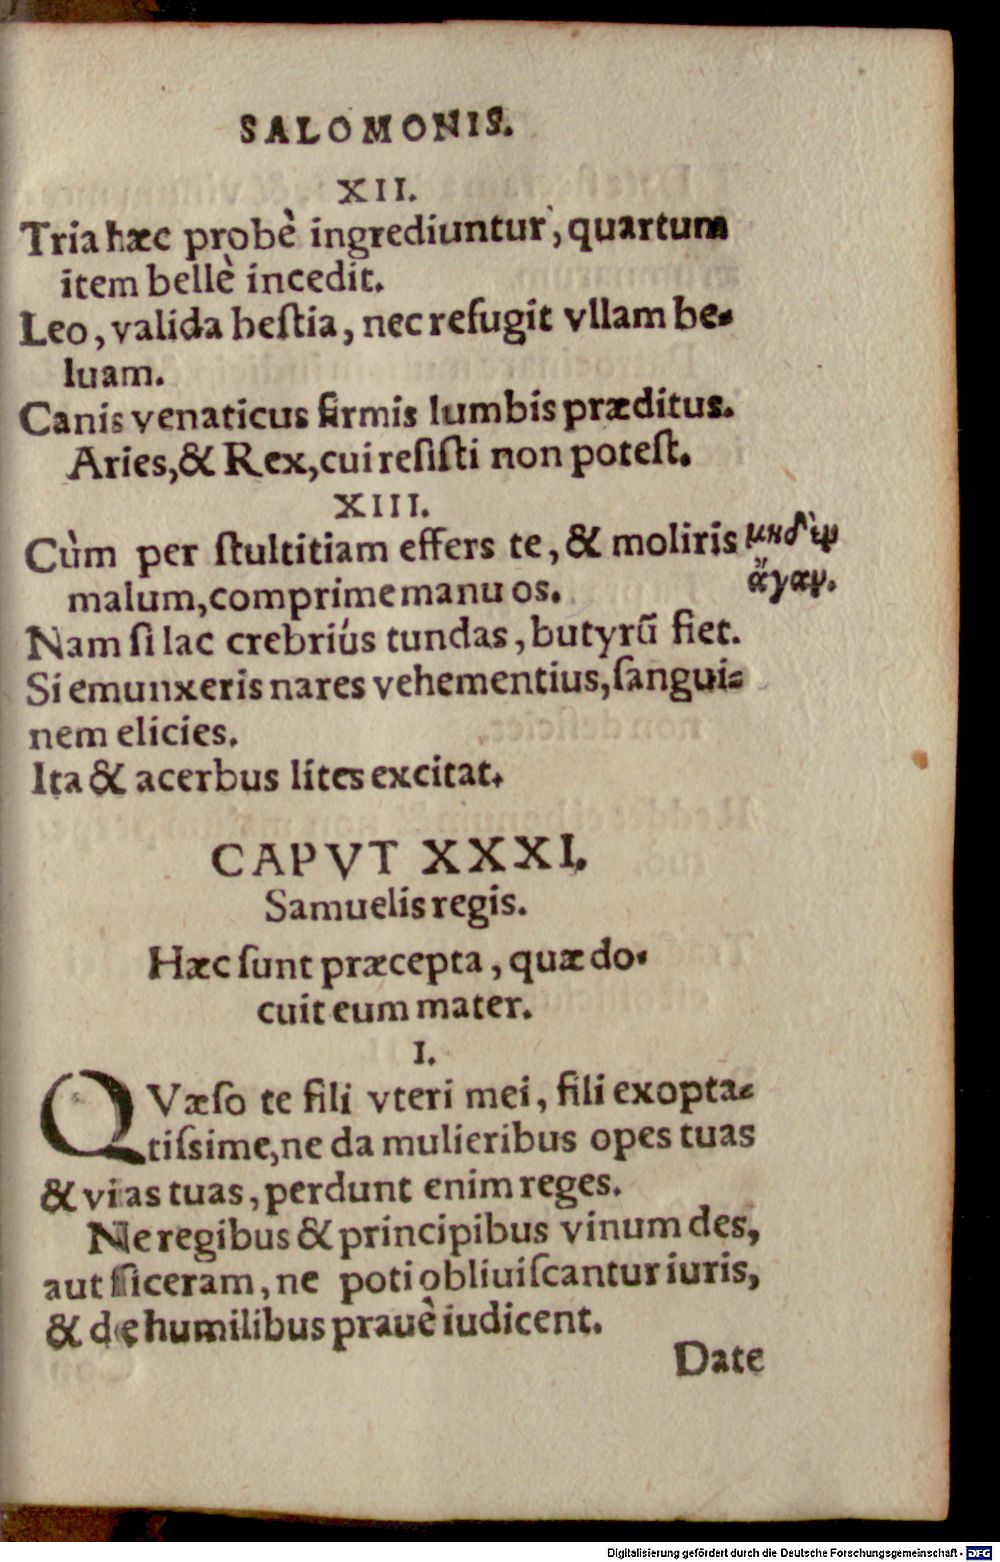 SALOMONIS.
XII.
Tria hæc probè ingrediuntur, quartum
item bellè incedit.
Leo, valida bestia, nec refugit vllam be-
luam.
Canis venaticus firmis lumbis præditus.
Aries, & Rex, cui resisti non potest.
XIII.
Cùm per ſtultitiam effers te, & moliris
malum, comprime manu os.
μηδὲν
ἄγαν.
Nam ſi lac crebriús tundas, butyrũ fiet.
Si emunxeris nares vehementius, ſangui-
nem elicies.
Ita & acerbus lites excitat.
CAPVT XXXI.
Samuelis regis.
Hæc ſunt præcepta, quæ do-
cuit eum mater.
I.
QVæſo te fili vteri mei, fili exopta-
tiſsime, ne da mulieribus opes tuas
& vias tuas, perdunt enim reges.
Ne regibus & principibus vinum des,
aut ſiceram, ne poti obliuiſcantur iuris,
& de humilibus prauè iudicent.
Date
Digitalisierung gefördert durch die Deutsche Forschungsgemeinschaft - DFG